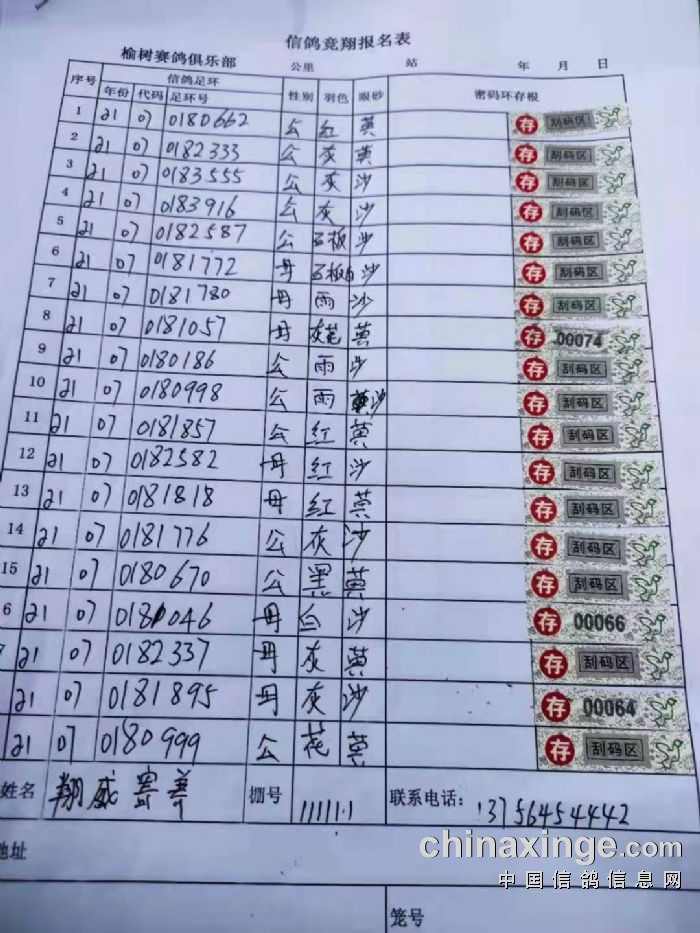 信鸽竞翔报名表
榆树赛鸽俱乐部 公里 站 年 月 日
序号 信鸽足环 性别 羽色 眼砂 密码环存根
年份 代码 足环号
1 21 07 0180662 公 红 黄 存 刮码区
2 21 07 0182333 公 灰 黄 存 刮码区
3 21 07 0183555 公 灰 沙 存 刮码区
4 21 07 0183916 公 灰 沙 存 刮码区
5 21 07 0182587 公 石板 沙 存 刮码区
6 21 07 0181772 母 石板白 沙 存 刮码区
7 21 07 0181780 母 雨 沙 存 刮码区
8 21 07 0181057 母 灰花 黄 存 00074
9 21 07 0180186 公 雨 沙 存 刮码区
10 21 07 0180998 公 雨 沙 存 刮码区
11 21 07 0181857 公 红 黄 存 刮码区
12 21 07 0182582 母 红 沙 存 刮码区
13 21 07 0181818 母 红 黄 存 刮码区
14 21 07 0181776 公 灰 沙 存 刮码区
15 21 07 0180670 公 黑 黄 存 刮码区
6 21 07 018 046 母 白 沙 存 00066
21 07 0182337 母 灰 黄 存 刮码区
21 07 0181895 母 灰 沙 存 00064
21 07 0180999 公 花 黄 存 刮码区
姓名 翔威 棚号 联系电话： 13756454442
地址
笼号
chinaxinge.com
中国信鸽信息网